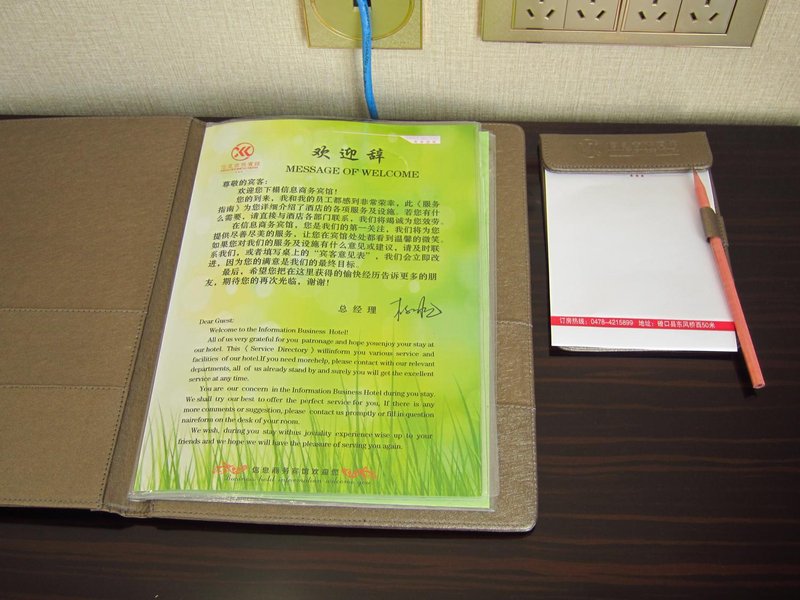 欢迎辞
MESSAGE OF WELCOME
尊敬的宾客：
欢迎您下榻信息商务宾馆！
您的到来，我和我的员工都感到非常荣幸，此《服务
指南》为您详细介绍了酒店的各项服务及设施。若您有什
么需要，请直接与酒店各部门联系，我们将竭诚为您效劳。
在信息商务宾馆，您是我们的第一关注，我们将为您
提供尽善尽美的服务，让您在宾馆处处都看到温馨的微笑。
如果您对我们的服务及设施有什么意见或建议，请及时联
系我们，或者填写桌上的“宾客意见表”，我们会立即改
进，因为您的满意是我们的最终目标。
最后，希望您把在这里获得的愉快经历告诉更多的朋
友，期待您的再次光临，谢谢！
总 经 理
Dear Guest:
Welcome to the Information Business Hotel!
All of us very grateful for you patronage and hope youenjoy your stay at
our hotel. This《Service Directory》willinform you various service and
facilities of our hotel.If you need morehelp, please contact with our relevant
departments, all of us already stand by and surely you will get the excellent
service at any time.
You are our concern in the Information Business Hotel during you stay.
We shall try our best to offer the perfect service for you, If there is any
more comments or suggestion, please contact us promptly or fill in question
naireform on the desk of your room.
We wish, during you stay withus joviality experience wise up to your
friends and we hope we will have the pleasure of serving you again.
信息商务宾馆欢迎您
订房热线：0478-4215899 地址：磴口县东风桥西50米